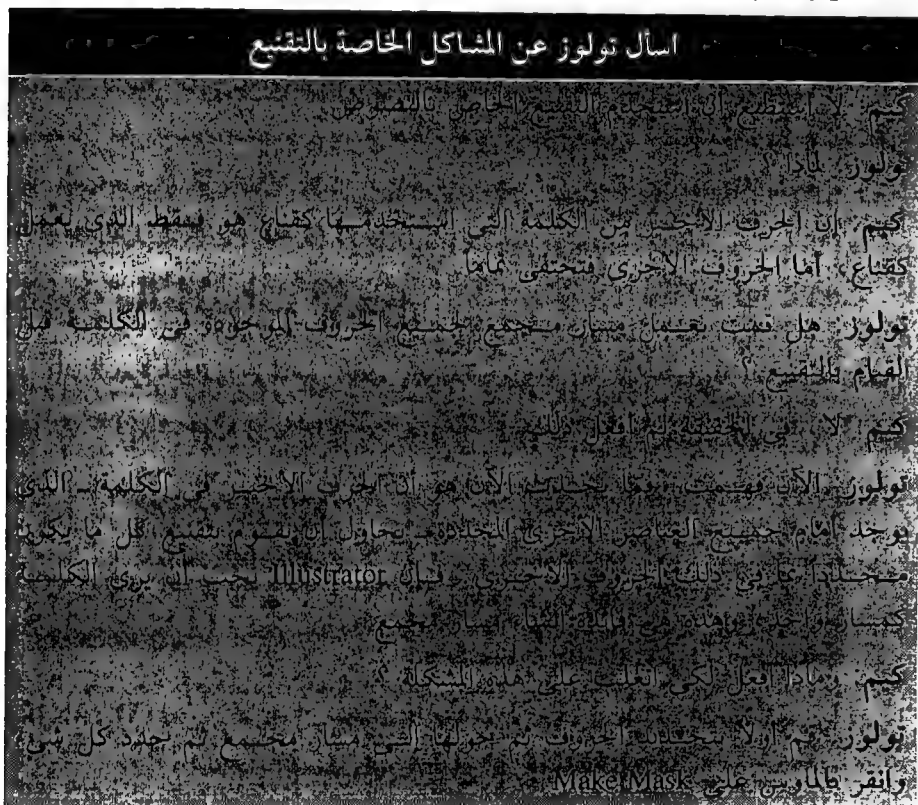 اسأل تولوز عن المشاكل الخاصة بالتقنيع
كيم لا أستطيع أن أستخدم التقنيع الخاص بالنصوص
تولوز لماذا ؟
كيم إن الحرف الأخير من الكلمة التي استخدمتها كقناع هو فقط الذي يعمل
كقناع، أما الحروف الأخرى فتختفى تماما
تولوز هل قمت بعمل مسار مجمع لجميع الحروف الموجودة في الكلمة قبل
القيام بالتقنيع ؟
كيم لا في الحقيقة لم أفعل ذلك
تولوز الآن فهمت، وما يحدث الآن هو أن الحرف الأخير في الكلمة ـ الذي
يوجد أمام جميع العناصر الأخرى المحددة ـ يحاول أن يقوم بتقنيع كل ما يكون
محددا بما في ذلك الحروف الأخرى فإن Illustrator يجب أن يرى الكلمة
كمسار واحد، وهذه هي فائدة مسار مجمع
كيم وماذا أفعل لكي أتغلب على هذه المشكلة ؟
تولوز قم أولا بتحديد الحروف ثم حولها إلى مسار مجمع ثم حدد كل شئ
وانقر بالماوس على Make Mask